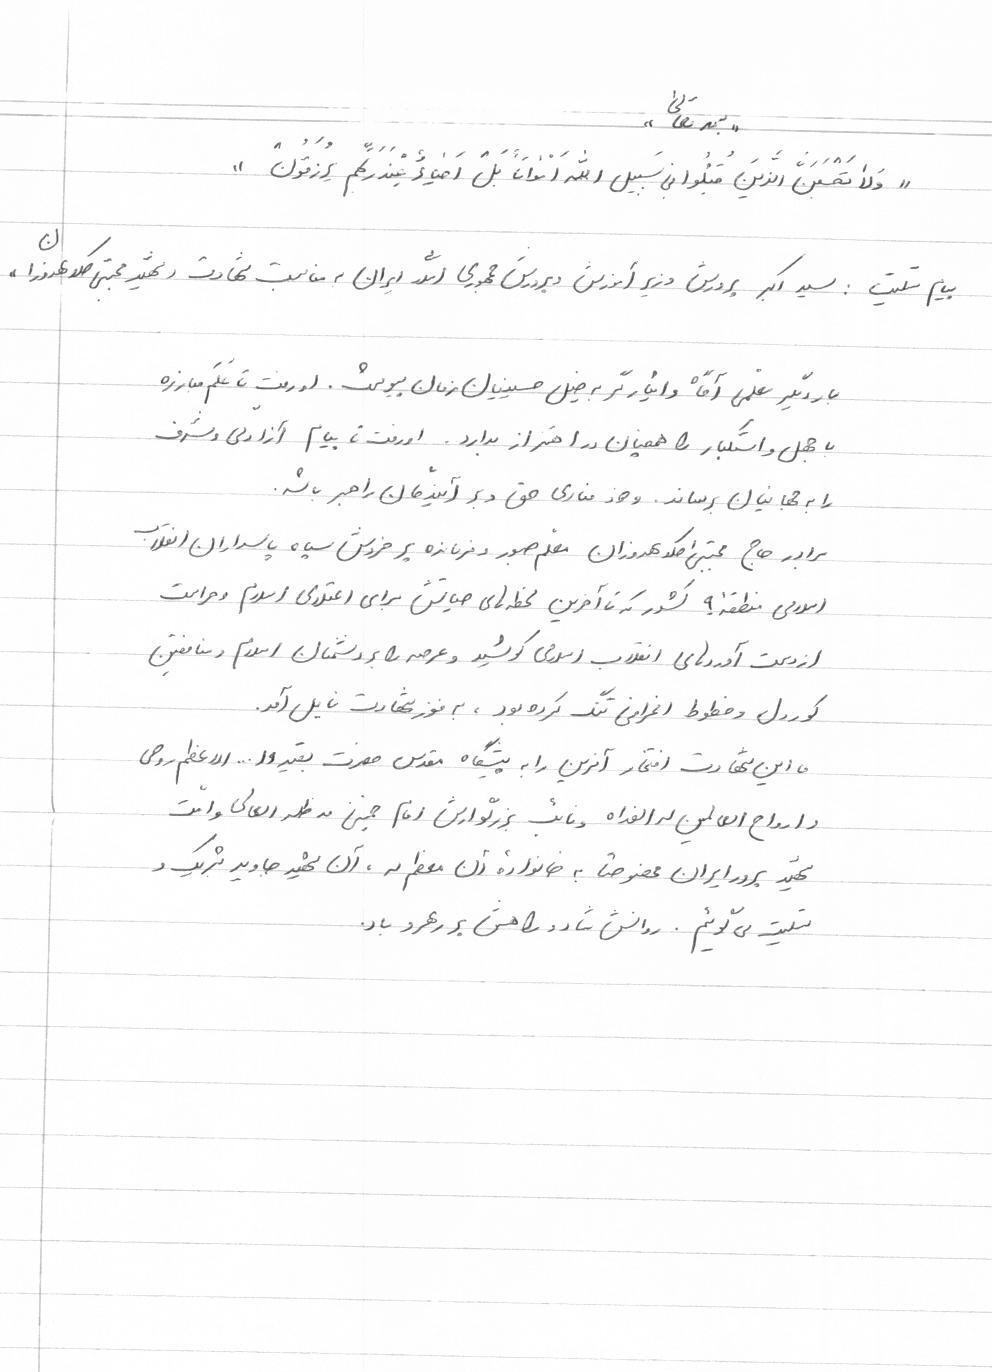 «بسمه تعالی»
«وَلاٰ تَحْسَبَنَّ الَّذِينَ قُتِلُوا فِي سَبِيلِ اللهِ اَمْوٰاتاً بَلْ اَحْيٰاءٌ عِنْدَ رَبِّهِمْ يُرْزَقُونَ»
پیام تسلیت : سید اکبر پرورش وزیر آموزش و پرورش جمهوری اسلامی ایران به مناسبت شهادت «شهید مجتبی کلاهدوزان»
بار دیگر معلمی آگاه و ایثارگر به خیل حسینیان زمان پیوست. او رفت تا عَلَم مبارزه
با جهل و استکبار را همچنان در اهتزاز بدارد. او رفت تا پیام آزادگی و شرف
را به جهانیان برساند. و خود منادی حق و بر آیندگان راهبر باشد.
برادر حاج مجتبی کلاهدوزان معلم صبور و فرمانده پر خروش سپاه پاسداران انقلاب
اسلامی منطقه ۹ کشور که تا آخرین لحظه‌های حیاتش برای اعتلای اسلام و حراست
از دست آوردهای انقلاب اسلامی کوشید و عرصه را بر دشمنان اسلام و منافقین
کوردل و خطوط انحرافی تنگ کرده بود ، به فوز شهادت نایل آمد.
ما این شهادت افتخار آفرین را به پیشگاه مقدس حضرت بقیة الله الاعظم روحی
و ارواح العالمین له الفداه و نائب بزرگوارش امام خمینی مد ظله العالی و امّت
شهید پرور ایران مخصوصاً به خانوادهٔ آن معظم له ، آن شهید جاوید تبریک و
تسلیت می‌گوئیم . روانش شاد و راهش پر رهرو باد.